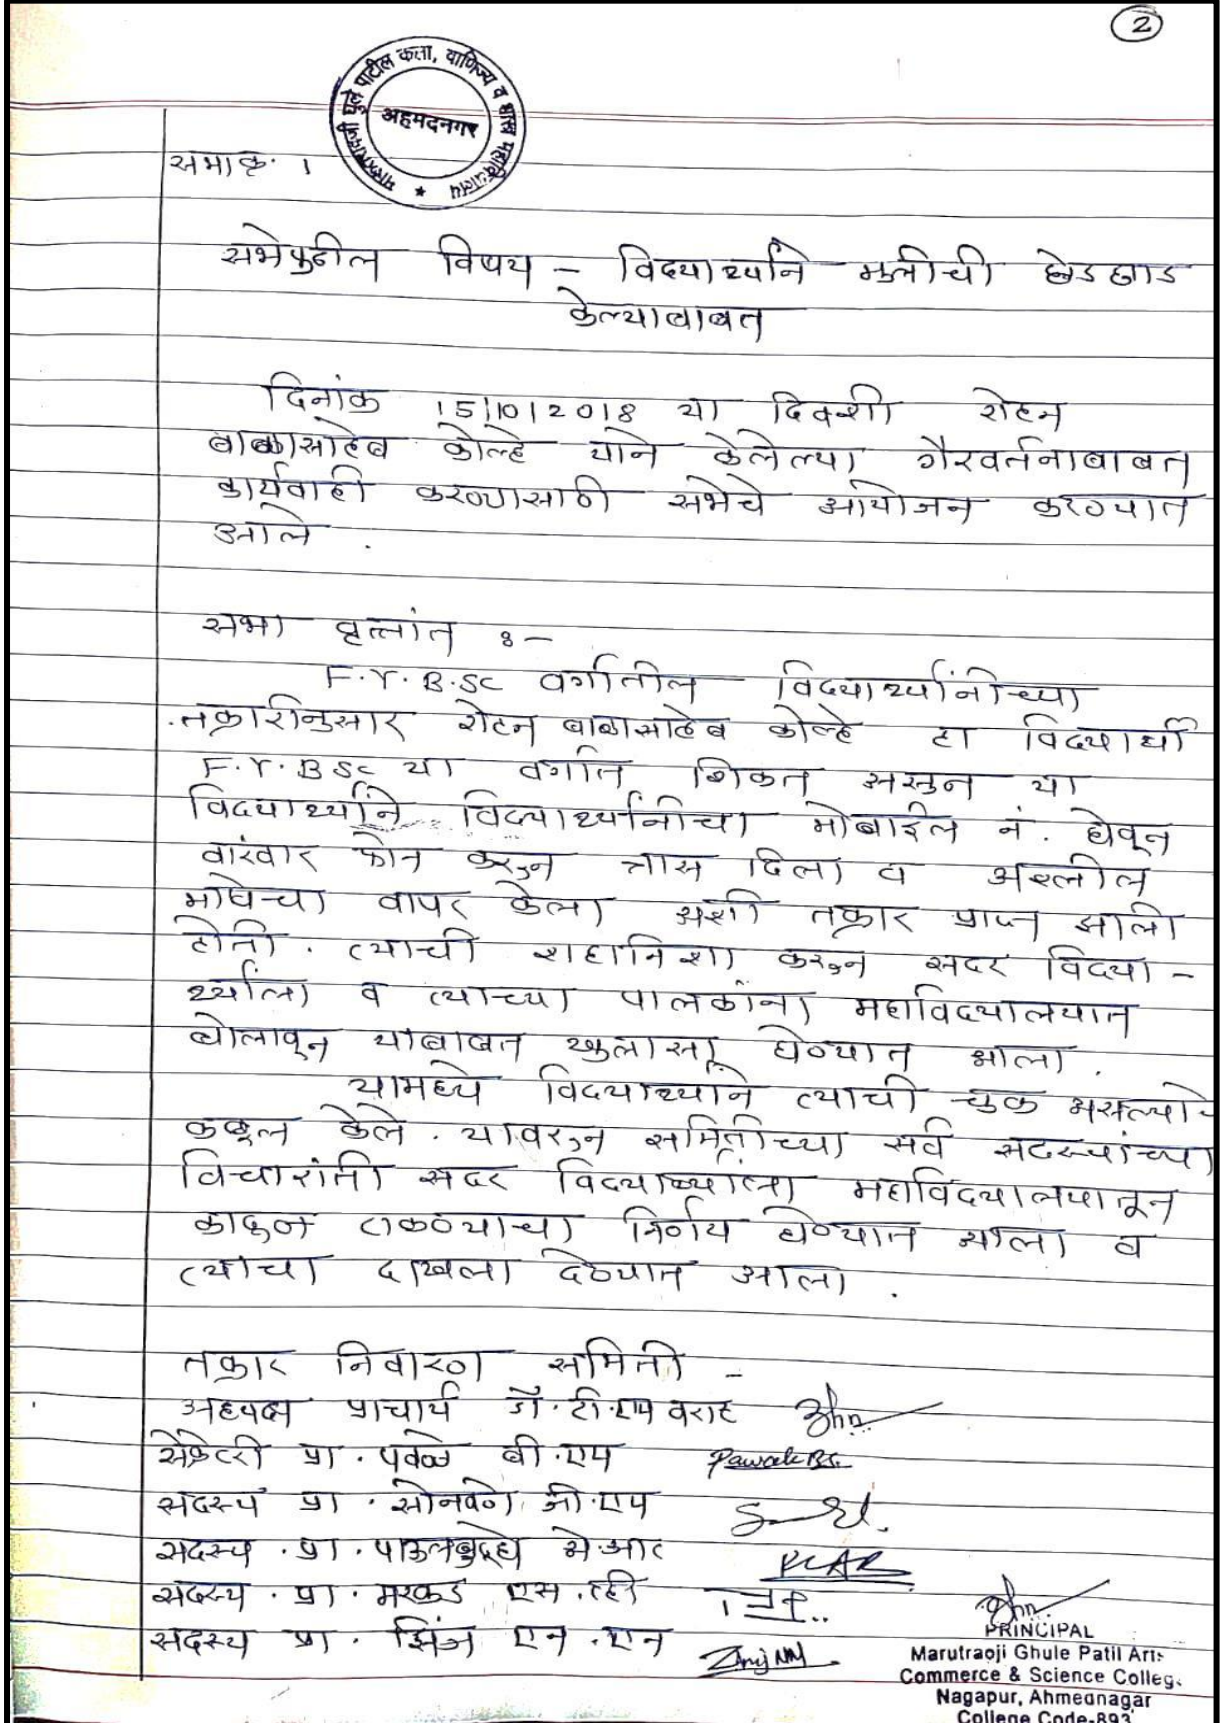 2
मारुतरावजी घुले पाटील कला, वाणिज्य व शास्त्र महाविद्यालय
अहमदनगर
सभाक्र. 1
सभेपुढील विषय - विद्यार्थ्याने मुलीची छेडछाड
केल्याबाबत
दिनांक 15/10/2018 या दिवशी रोहन
बाळासाहेब कोल्हे याने केलेल्या गैरवर्तनाबाबत
कार्यवाही करण्यासाठी सभेचे आयोजन करण्यात
आले.
सभा वृत्तांत :-
F.Y.B.SC वर्गातील विद्यार्थ्यांनीच्या
तक्रारीनुसार रोहन बाळासाहेब कोल्हे हा विद्यार्थी
F.Y.BSc या वर्गात शिकत असून या
विद्यार्थ्याने विद्यार्थ्यांनीचा मोबाईल नं. घेवून
वारंवार फोन करून त्रास दिला व अश्लील
भाषेचा वापर केला अशी तक्रार प्राप्त झाली
होती. त्याची शहानिशा करून सदर विद्या-
र्थ्यांला व त्याच्या पालकांना महाविद्यालयात
बोलावून याबाबत खुलासा घेण्यात आला.
यामध्ये विद्यार्थ्याने त्याची चुक असल्याचे
कबूल केले. यावरून समितीच्या सर्व सदस्यांच्या
विचारांती सदर विद्यार्थ्यांला महाविद्यालयातून
काढून टाकण्याचा निर्णय घेण्यात आला व
त्याचा दाखला देण्यात आला.
तक्रार निवारण समिती -
अध्यक्ष प्राचार्य डॉ. टी. एम वराट
सेक्रेटरी प्रा. पवळे बी.एम Pawale B.S.
सदस्य प्रा. सोनवणे जी.एम
सदस्य. प्रा. पाऊलबुद्धे के.आर
सदस्य. प्रा. मरकड एस.व्ही
सदस्य प्रा. झिंज एन.एन Zinj NN
PRINCIPAL
Marutraoji Ghule Patil Arts
Commerce & Science Colleg.
Nagapur, Ahmednagar
College Code-893